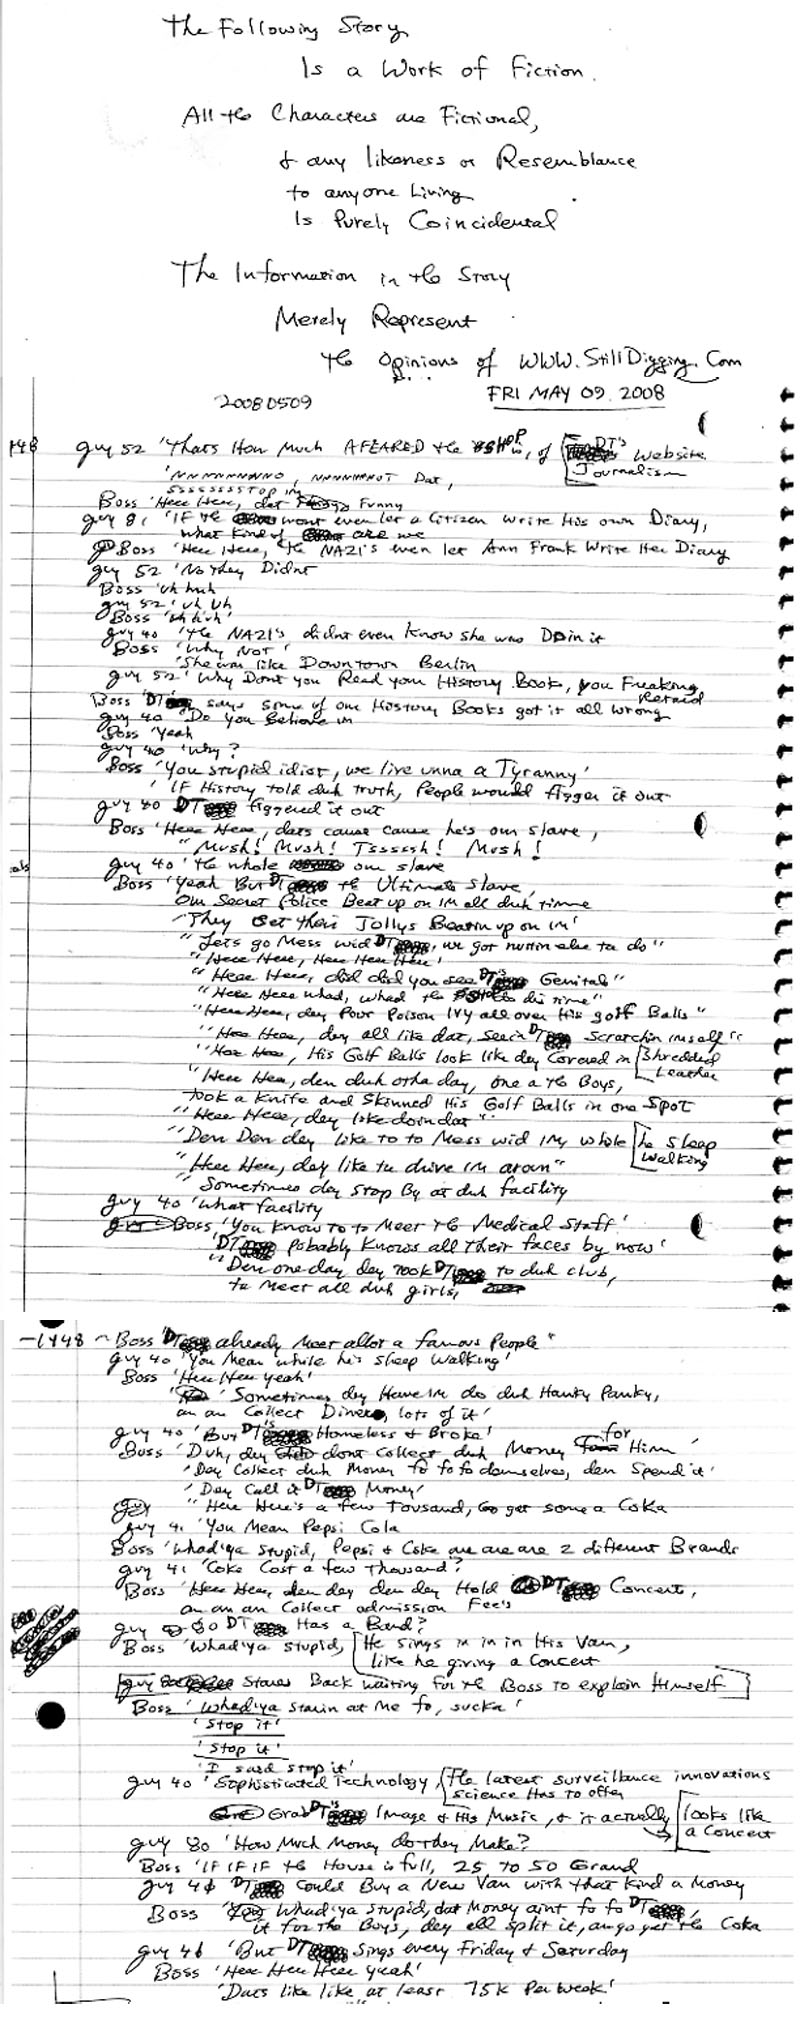 The Following Story
Is a Work of Fiction.
All the Characters are Fictional,
& any likeness or Resemblance
to anyone Living
Is Purely Coincidental
The Information in the Story
Merely Represent
the Opinions of WWW.StillDigging.Com
20080509 FRI MAY 09, 2008
guy 52 'Thats How Much AFEARED the is, of DT's Website Journalism
'NNNNNNNNO, NNNNNNNOT Dat,
SSSSSSSSTOP IM
Boss 'Here Here, dat Funny
guy 81 'IF the wont even let a Citizen Write His own Diary,
what kind of are we
Boss 'Here Here, the NAZI's even let Ann Frank Write Her Diary
guy 52 'No they Didnt
Boss 'uh huh
guy 52 'uh uh
Boss 'uh huh'
guy 40 'the NAZI's didnt even know she was Doin it
Boss 'Why Not'
'She was like Downtown Berlin
guy 52 'Why Dont you Read your History Book, you Freaking Retard
Boss 'DT says some of our History Books got it all wrong
guy 40 'Do you Believe im
Boss 'Yeah
guy 40 'Why?
Boss 'You stupid idiot, we live unna a Tyranny'
'IF History told duh truth, People would figger it out
guy 80 DT figgered it out
Boss 'Here Here, dats cause cause he's our slave,
"Mush! Mush! Tssssh! Mush!
guy 40 'the whole our slave
Boss 'Yeah But DT the Ultimate Slave,
Our Secret Police Beat up on im all duh time
'They Get their Jollys Beatin up on im'
"Lets go Mess wid DT, we got nuttin else ta do"
"Here Here, Here Here Here'
"Here Here, did did you see DT's Genitals"
"Here Here whad, whad the do dis time"
"Here Here, dey Pour Poison Ivy all over His golf Balls"
"Here Here, dey all like dat, seein DT Scratchin imself"
"Here Here, His Golf Balls look like dey Covered in Shredded Leather
"Here Here, den duh otha day, one a the Boys,
took a Knife and Skinned His Golf Balls in one Spot
"Here Here, dey like doin dat"
"Den Den dey like to to Mess wid im, while he Sleep Walking
"Here Here, dey like ta drive im aroun"
"Sometimes dey stop By at duh facility
guy 40 'What facility
Boss 'You know to to Meet the Medical Staff'
'DT Pobably knows all their faces by now'
"Den one day dey took DT to duh club,
ta meet all duh girls,
-1448 Boss 'DT already Meet allot a famous People"
guy 40 'You Mean while he's sleep walking'
Boss 'Here Here yeah'
'Sometimes dey Have im do duh Hanky Panky,
an an Collect Dinero, lots of it'
guy 40 'But DT's Homeless & Broke'
Boss 'Duh, dey dont Collect duh Money for Him'
'Dey Collect duh Money fo fo fo demselves, den Spend it'
'Dey Call it DT Money'
"Here Here's a few Tousand, Go get some a Coka
guy 41 'You Mean Pepsi Cola
Boss 'Whad'ya stupid, Pepsi & Coke are are are 2 different Brands
guy 41 'Coke Cost a few Thousand?
Boss 'Here Here, den dey den dey Hold DT Concert,
an an an Collect admission Fee's
guy 80 DT Has a Band?
Boss 'Whad'ya stupid, He sings in in in His Van,
like he giving a Concert
Stares Back waiting for the Boss to explain Himself
Boss 'Whad'ya starin at Me fo, sucka'
'Stop it'
'Stop it'
'I said stop it'
guy 40 'Sophisticated Technology, the latest surveillance innovations science Has to offer
Grab DT's Image & His Music, & it actually looks like a Concert
guy 80 'How Much Money do they Make?
Boss 'IF IF IF the House is full, 25 to 50 Grand
guy 40 DT Could Buy a New Van with that Kind a Money
Boss Whad'ya stupid, dat Money aint fo fo DT,
it for the Boys, dey all split it, an go get the Coka
guy 46 'But DT Sings every Friday & Saturday
Boss 'Here Here Here yeah'
'Dats like like at least 75K Per Week'